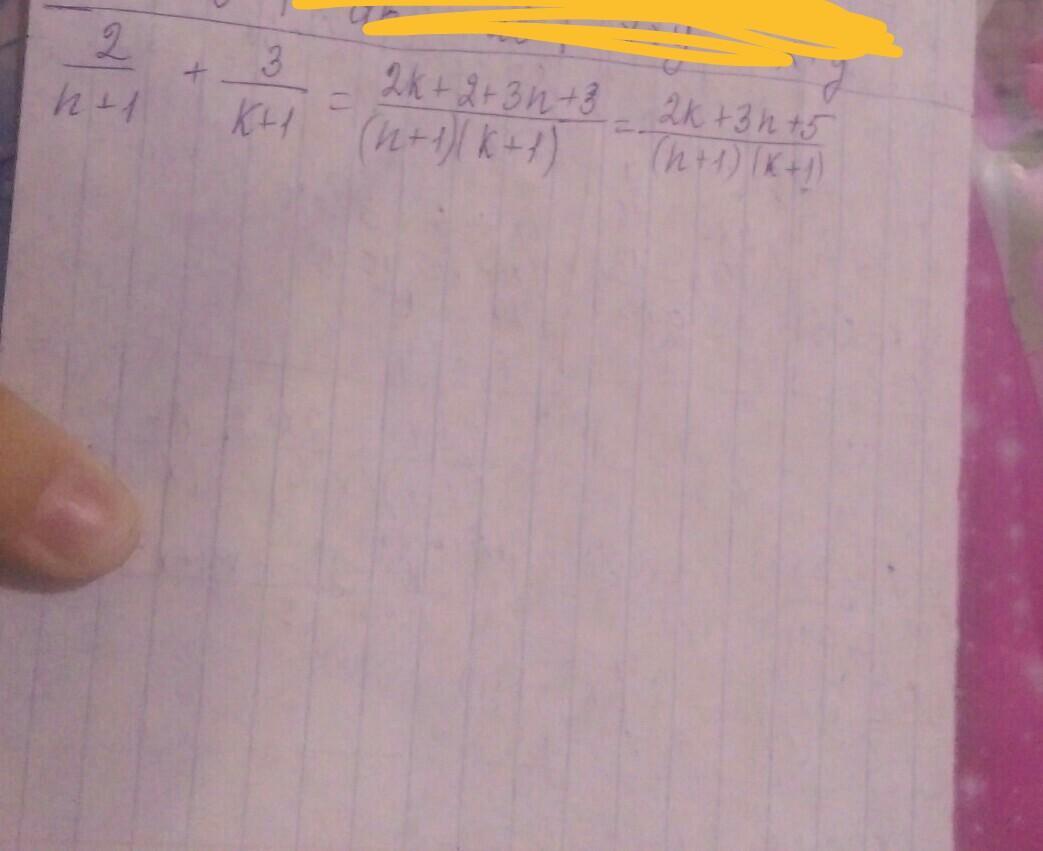 2/(n+1) + 3/(k+1) = (2k+2+3n+3)/((n+1)(k+1)) = (2k+3n+5)/((n+1)(k+1))